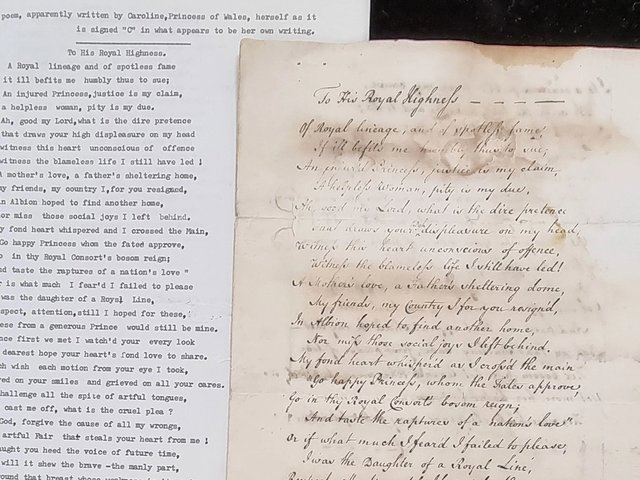 poem, apparently written by Caroline,Princess of Wales, herself as it
is signed "C" in what appears to be her own writing.
To His Royal Highness.
A Royal lineage and of spotless fame
it ill befits me humbly thus to sue;
An injured Princess,justice is my claim,
a helpless woman, pity is my due.
Ah, good my Lord,what is the dire pretence
that draws your high displeasure on my head
witness this heart unconscious of offence
witness the blameless life I still have led !
A mother's love, a father's sheltering home,
my friends, my country I,for you resigned,
in Albion hoped to find another home,
nor miss those social joys I left behind.
My fond heart whispered and I crossed the Main,
Go happy Princess whom the fates approve,
in thy Royal Consort's bosom reign;
and taste the raptures of a nation's love "
or is what much I fear'd I failed to please
was the daughter of a Royal Line,
spect, attention,still I hoped for these,
ese from a generous Prince would still be mine.
nce first we met I watch'd your every look
dearest hope your heart's fond love to share.
ch wish each motion from your eye I took,
ed on your smiles and grieved on all your cares.
challenge all the spite of artful tongues,
cast me off, what is the cruel plea ?
God, forgive the cause of all my wrongs,
artful Fair that steals your heart from me !
aught you heed the voice of future time,
will it shew the brave -the manly part,
To His Royal Highness
Of Royal lineage, and of spotless fame,
It ill befits me humbly thus to sue;
An injured Princess, justice is my claim
A helpless woman, pity is my due,
Ah, good my Lord, what is the dire pretence
that draws your displeasure on my head,
Witness this heart unconscious of offence,
Witness the blameless life I still have led!
A Mother's love, a Father's sheltering dome,
My friends, my Country I for you resign'd,
In Albion hoped to find another home,
Nor miss those social joys I left behind.
My fond heart whisper'd as I cross'd the main
Go happy Princess, whom the Fates approve,
Go in thy Royal Consort's bosom reign;
And taste the raptures of a nation's love"
Or if what much I feard I failed to please,
I was the Daughter of a Royal Line;